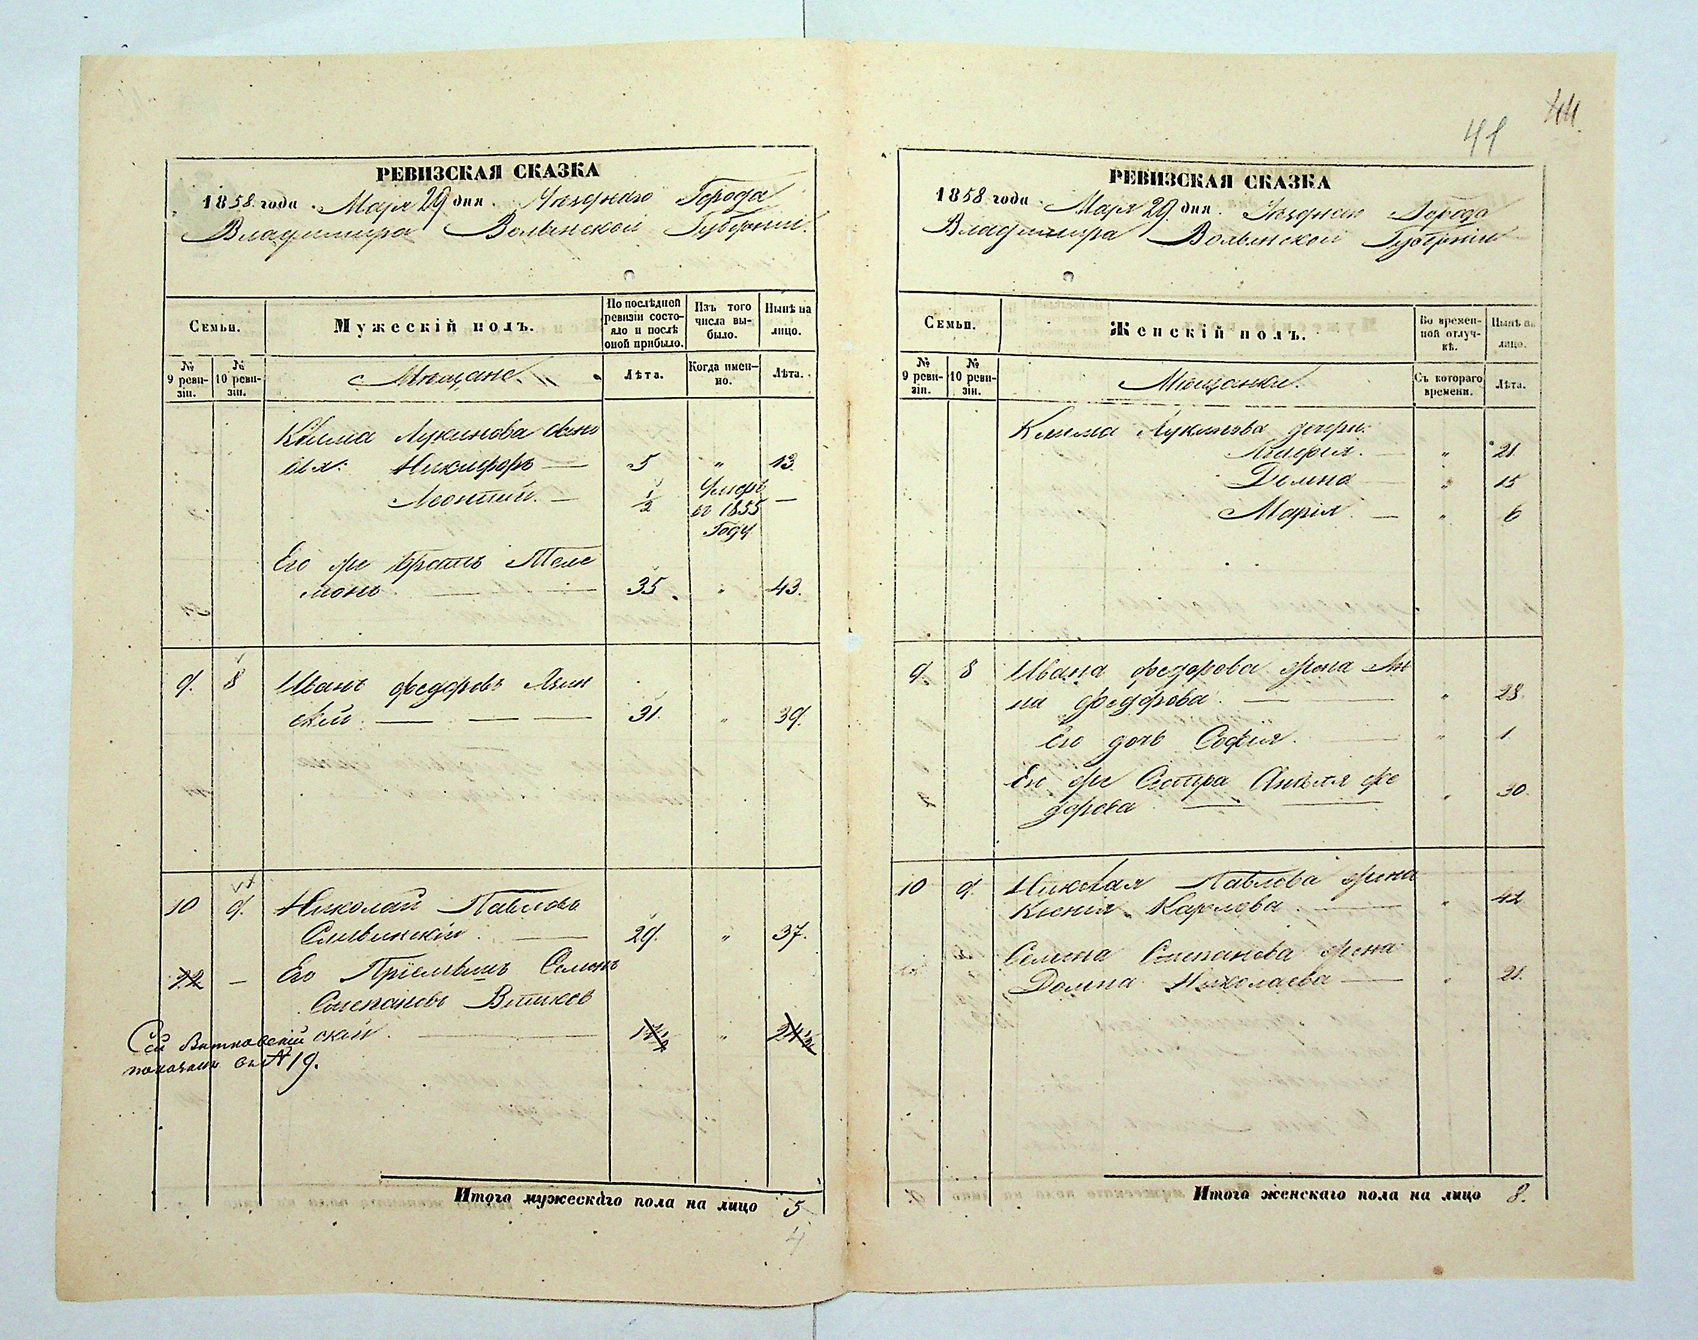 44
41
РЕВИЗСКАЯ СКАЗКА
1858 года Мар 29 дня. Уезднаго Города
Владимира Волынской Губернии.
Семьи.
Мужескій полъ.
По послѣдней ревизіи состояло и послѣ оной прибыло.
Изъ того числа выбыло.
Нынѣ на лицо.
№ 9 ревизіи.
№ 10 ревизіи.
Мещане.
Лѣта.
Когда именно.
Лѣта.
Клима Лукинова
Никифоръ — 5 „ 13.
Леонтий. — 1/2 Умеръ —
въ 1855
Году
Его же братъ Теле
монъ 35. „ 43.
9. 8 Иванъ Федоровъ
ский — — — 31. „ 39.
10 9. Николай Павловъ
Сливинскій. — 29. „ 37.
22 — Его Пріемышъ Семенъ
Степановъ Витков
ский. — „ 24 1/2
Сей Витковскій
показанъ въ № 19.
Итого мужескаго пола на лицо 5
4
РЕВИЗСКАЯ СКАЗКА
1858 года Мар 29 дня. Уезднаго Города
Владимира Волынской Губернии
Семьи.
Женскій полъ.
Во временной отлучкѣ.
Нынѣ на лицо.
№ 9 ревизіи.
№ 10 ревизіи.
Мещанки.
Съ котораго времени.
Лѣта.
Клима Лукинова дочери:
„ 21
Домна — „ 15
Марія — „ 6
9. 8 Ивана Федорова жена Ан
на Федорова — „ 28.
Его дочь Софія. — „ 1
Ея же Сестра Фе
дорова — „ 30.
10 9. Николая Павлова жена
Ксенія Карлова — „ 42
Семена Степанова жена
Домна Николаева — „ 21.
Итого женскаго пола на лицо 8.